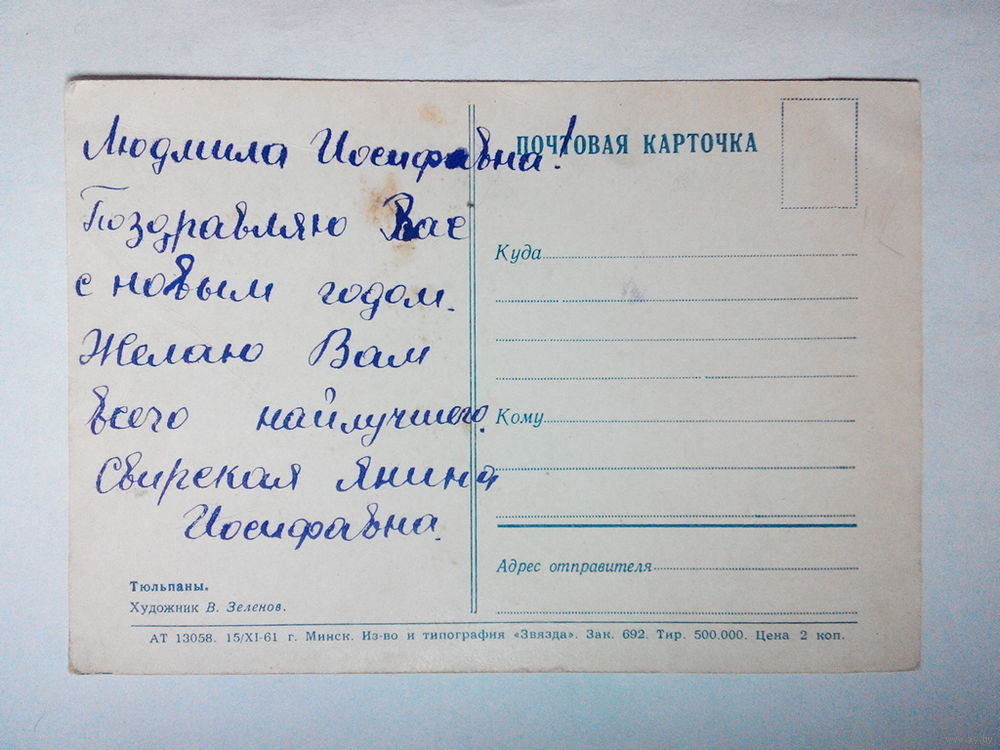 Людмила Иосифавна!
Поздравляю Вас
с новым годом.
Желаю Вам
всего найлучшего.
Свирская Янина
Иосифавна.
Тюльпаны.
Художник В. Зеленов.
ПОЧТОВАЯ КАРТОЧКА
Куда
Кому
Адрес отправителя
АТ 13058. 15/XI-61 г. Минск. Из-во и типография «Звязда». Зак. 692. Тир. 500.000. Цена 2 коп.